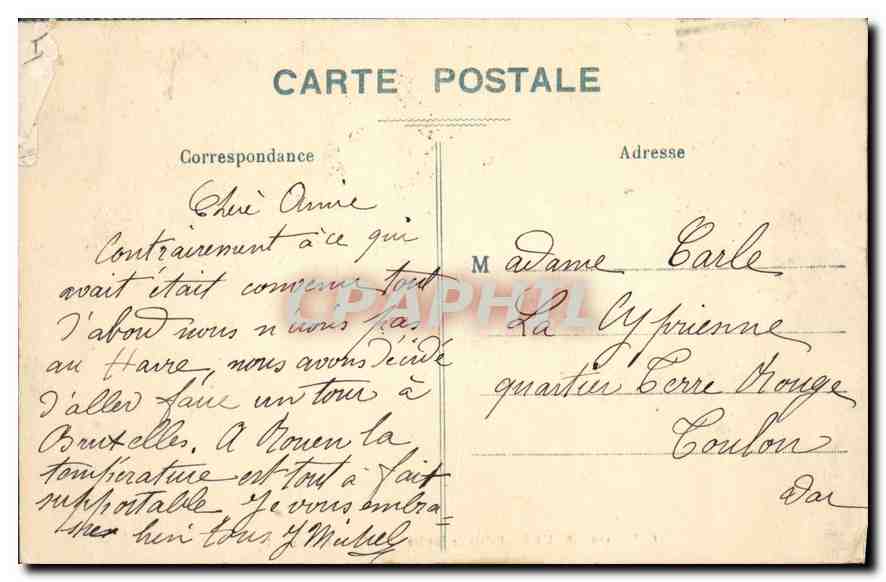 CARTE POSTALE
Correspondance
Chère Amie
Contrairement à ce qui
avait était convenu tout
d'abord nous n'irons pas
au Havre, nous avons décidé
d'aller faire un tour à
Bruxelles. A Rouen la
température est tout à fait
supportable. Je vous embra=
bien tous J Michel
Adresse
Madame Carle
La Cyprienne
quartier Terre Rouge
Toulon
Var
CPAPHIL